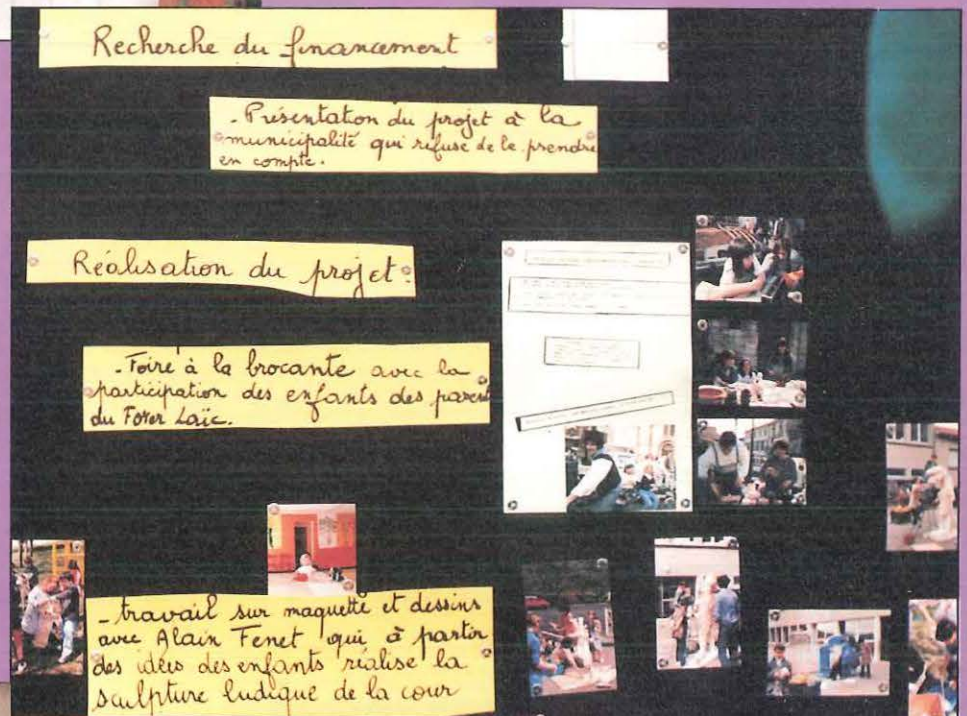 Recherche du financement
- Présentation du projet à la
municipalité qui refuse de le prendre
en compte.
Réalisation du projet.
- Foire à la brocante avec la
participation des enfants des parent
du Foyer Laïc.
- travail sur maquette et dessins
avec Alain Fenet qui à partir
des idées des enfants réalise la
sculpture ludique de la cour